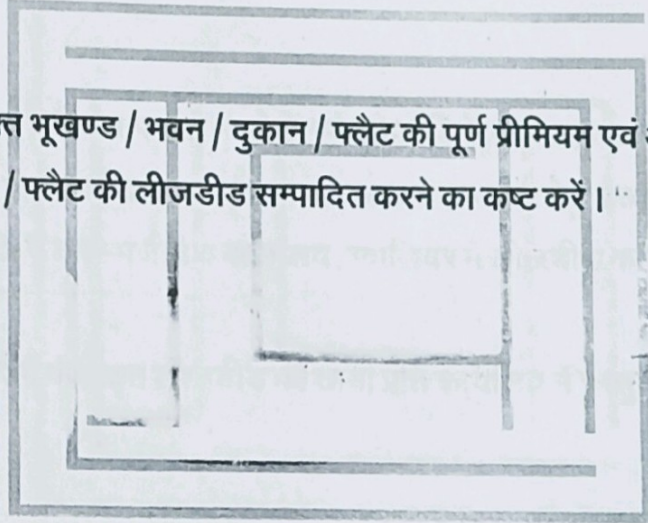 भूखण्ड / भवन / दुकान / फ्लैट की पूर्ण प्रीमियम एवं
/ फ्लैट की लीजडीड सम्पादित करने का कष्ट करें।